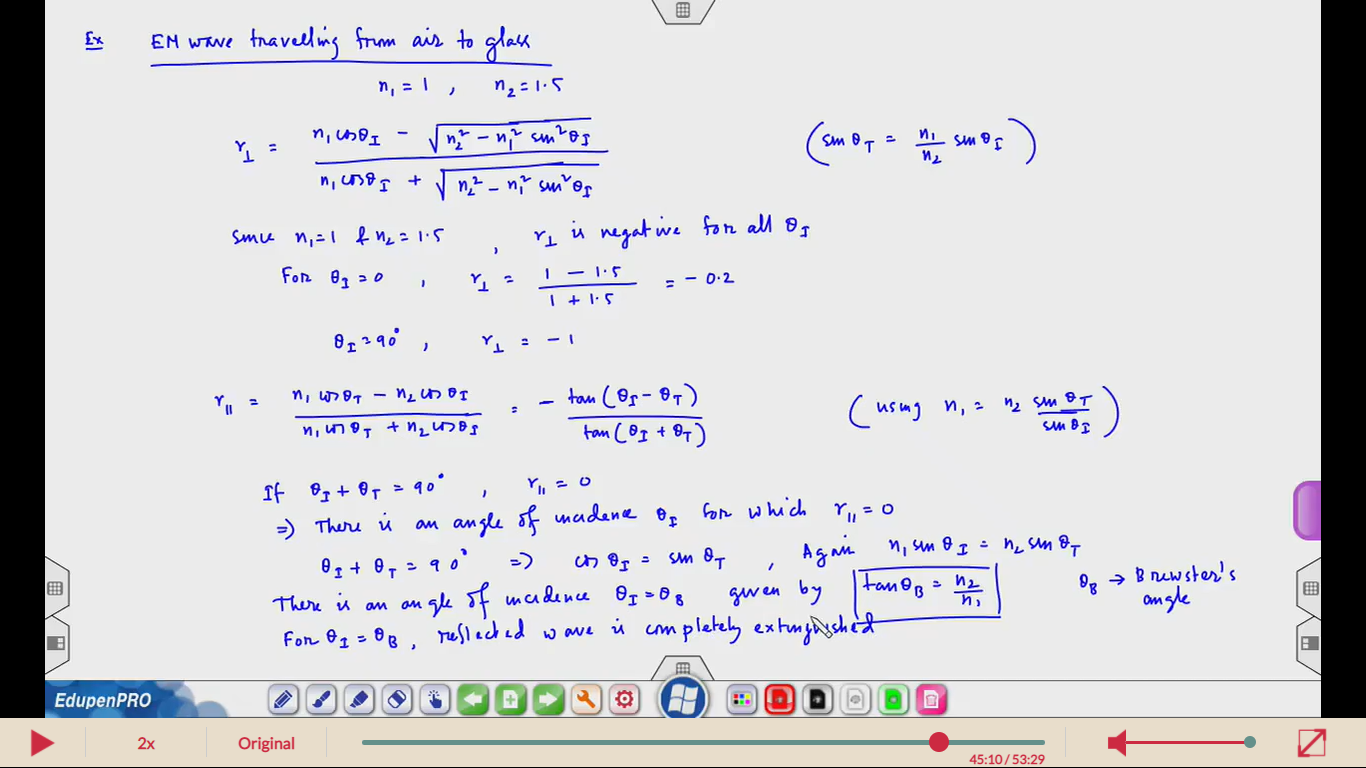 Ex EM wave travelling from air to glass
n₁ = 1 , n₂ = 1.5
r⊥ = (n₁ cosθ_I − √(n₂² − n₁² sin²θ_I)) / (n₁ cosθ_I + √(n₂² − n₁² sin²θ_I)) (sinθ_T = n₁/n₂ sinθ_I)
Since n₁=1 & n₂ = 1.5 , r⊥ is negative for all θ_I
For θ_I = 0 , r⊥ = (1 − 1.5)/(1 + 1.5) = − 0.2
θ_I = 90° , r⊥ = − 1
r∥ = (n₁ cosθ_T − n₂ cosθ_I)/(n₁ cosθ_T + n₂ cosθ_I) = − tan(θ_I − θ_T)/tan(θ_I + θ_T) (using n₁ = n₂ sinθ_T/sinθ_I)
If θ_I + θ_T = 90° , r∥ = 0
⇒ There is an angle of incidence θ_I for which r∥ = 0
θ_I + θ_T = 90° ⇒ cosθ_I = sinθ_T , Again n₁ sinθ_I = n₂ sinθ_T
There is an angle of incidence θ_I = θ_B given by tanθ_B = n₂/n₁ θ_B → Brewster's angle
For θ_I = θ_B , reflected wave is completely extinguished
EdupenPRO
2x Original 45:10 / 53:29